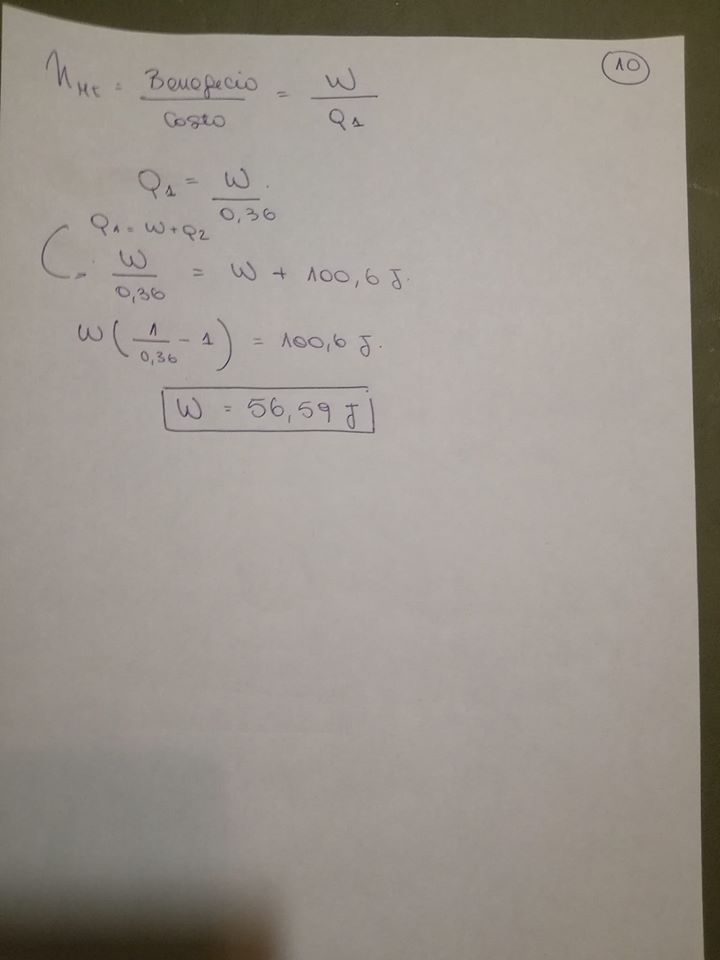 10
η_Mt = Beneficio / Costo = W / Q1
Q1 = W / 0,36
Q1 = W + Q2
= W / 0,36 = W + 100,6 J.
W ( 1 / 0,36 - 1 ) = 100,6 J.
W = 56,59 J